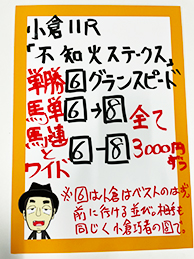 小倉11R
「不知火ステークス」
単勝 6 グランスピード
馬単 6→8 全て
馬連とワイド 6-8 3000円ずつ
※6は小倉はベストのはず。
前に行ける並び。相手も
同じく小倉巧者の図で。